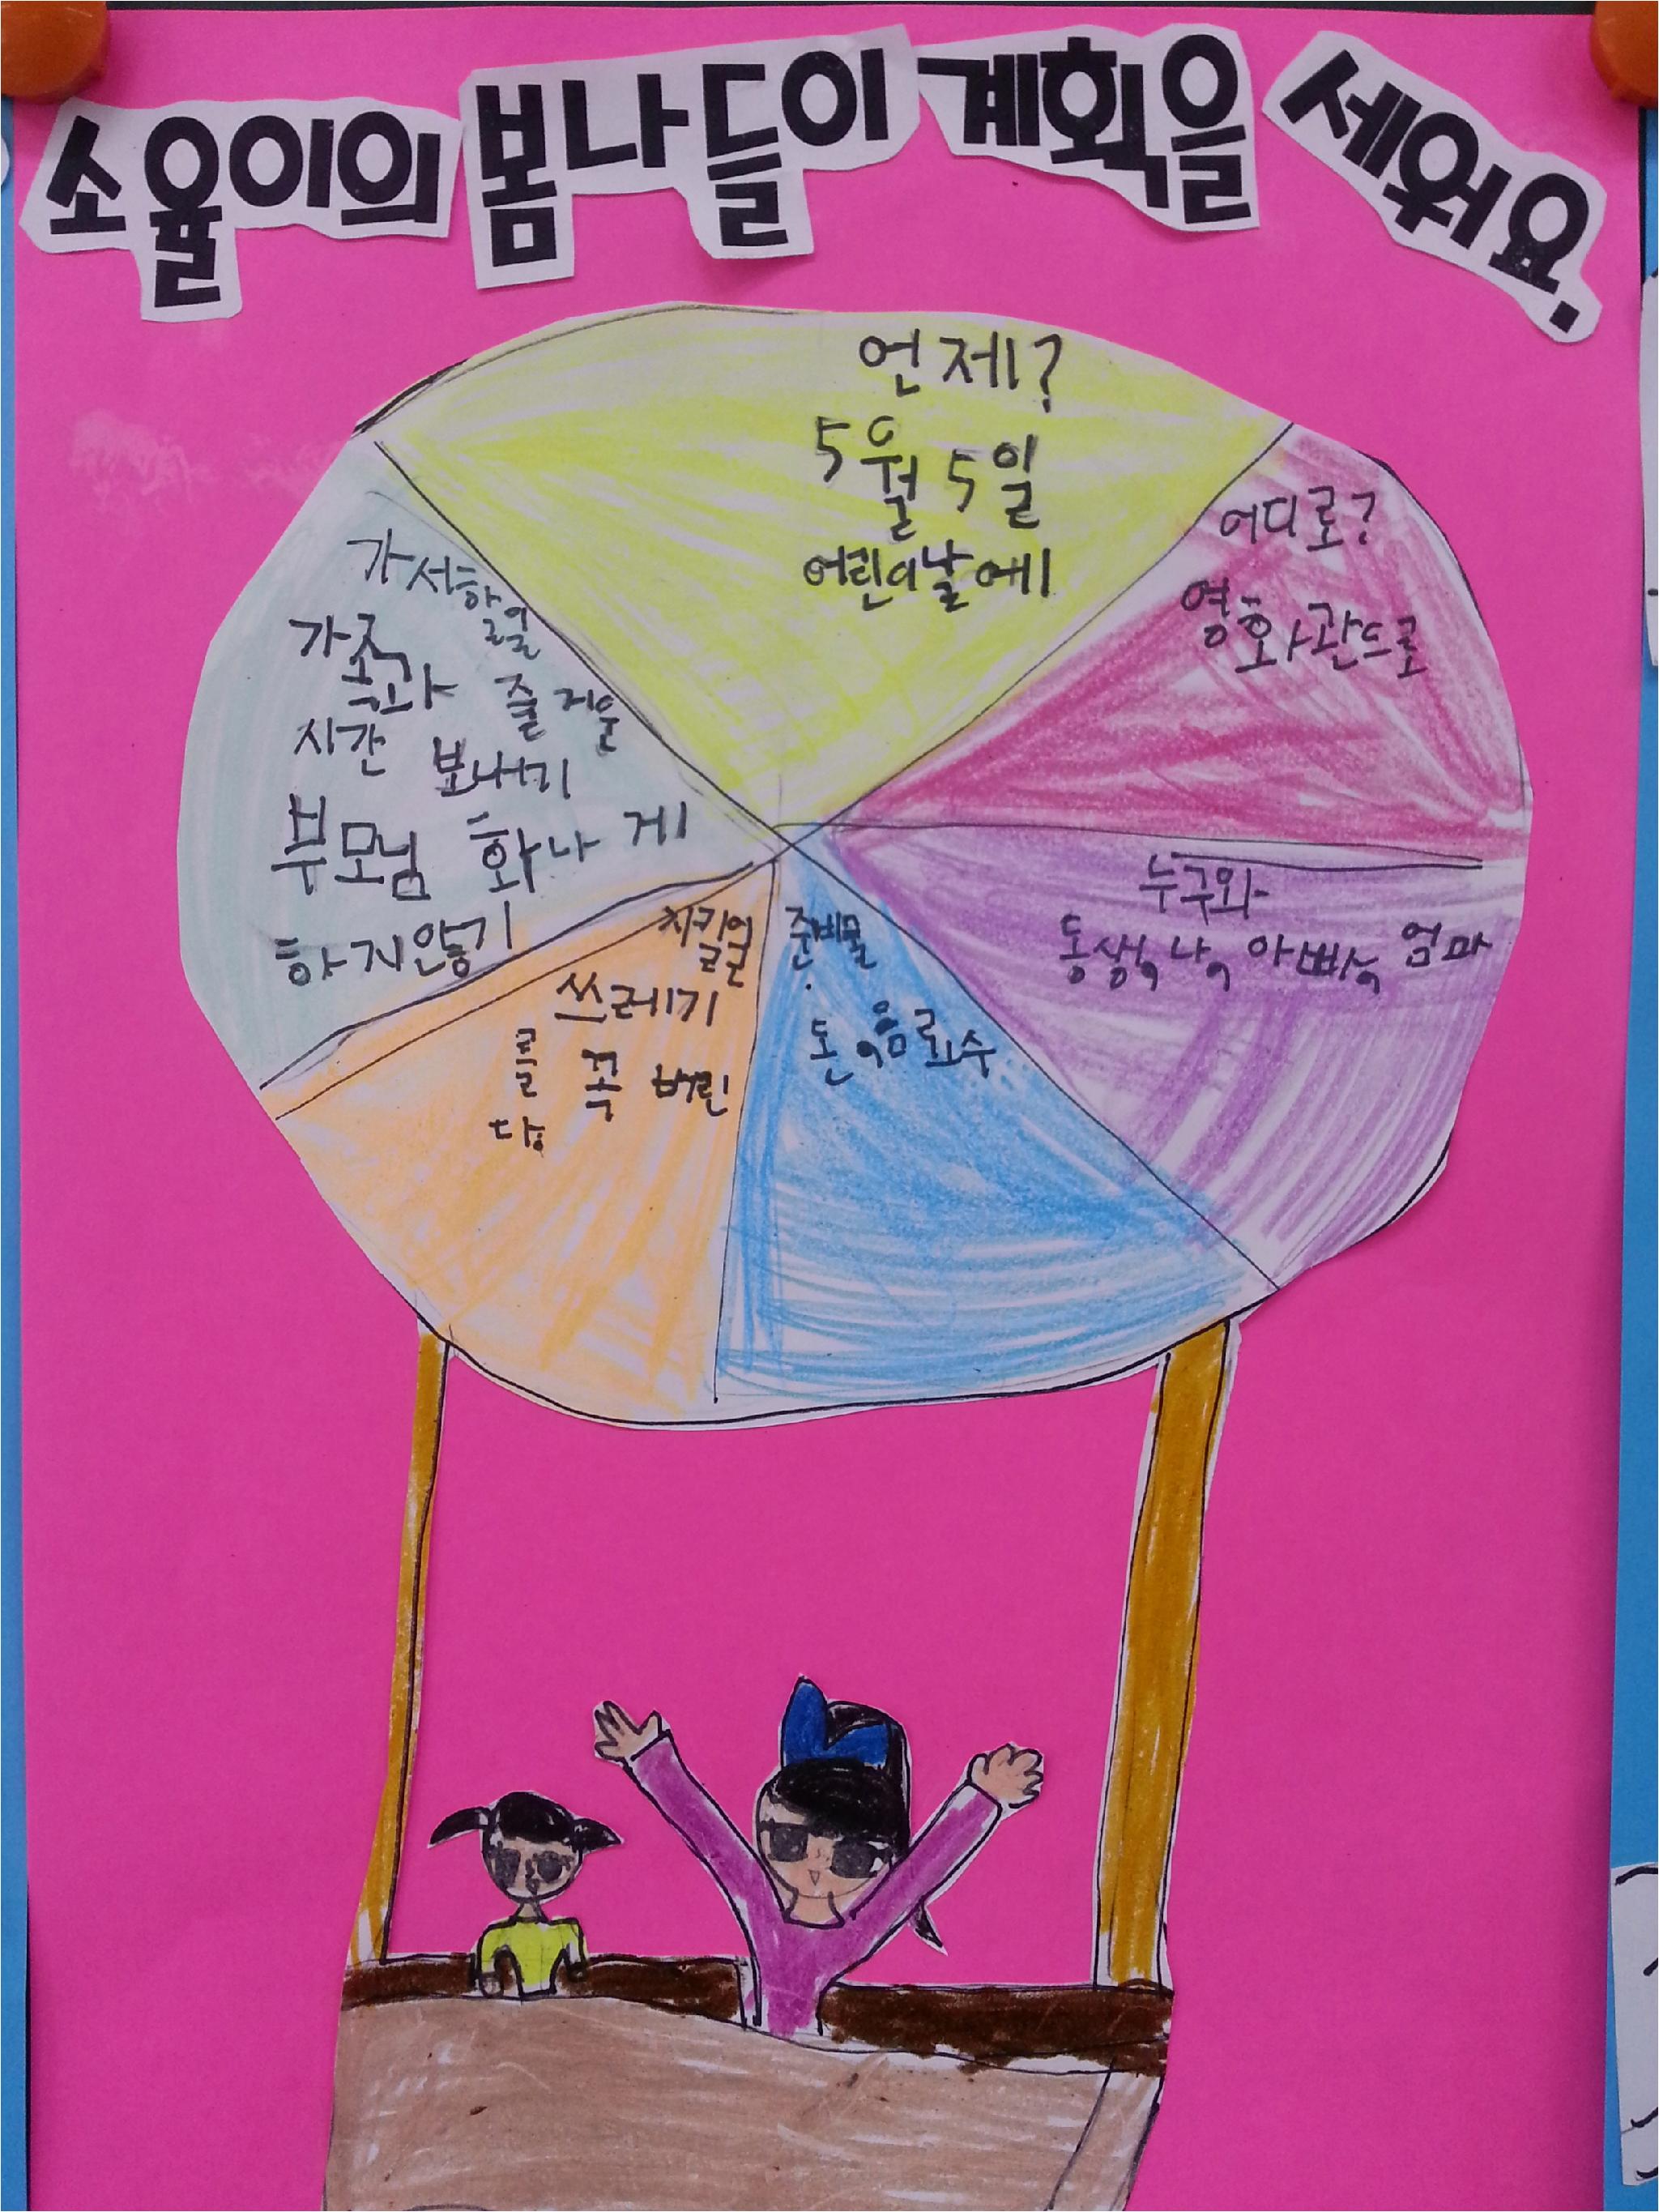 소율이의 봄나들이 계획을 세워요.
언제?
5월 5일
어린이날에
어디로?
영화관드로
누구와
동생, 나, 아빠, 엄마
준비물
돈, 음료수
지킬일
쓰레기
를 꼭 버린
다.
가서할일
가족과 줄거운
시간 보내기
부모님 화나게
하지않기